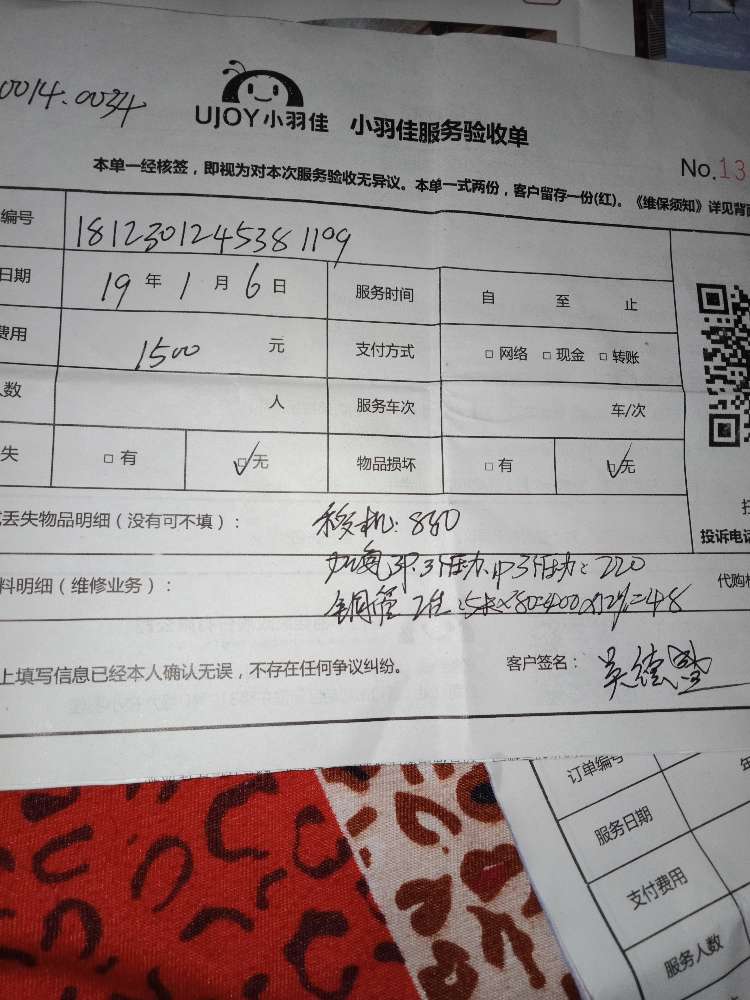 0014.0034
UJOY小羽佳 小羽佳服务验收单
No.13
本单一经核签，即视为对本次服务验收无异议。本单一式两份，客户留存一份(红)。《维保须知》详见背面
编号 1812301245381109
日期 19 年 1 月 6 日 服务时间 自 至 止
费用 1500 元 支付方式 □ 网络 □ 现金 □ 转账
数 人 服务车次 车/次
失 □ 有 ☑ 无 物品损坏 □ 有 ☑ 无
丢失物品明细（没有可不填）： 移机: 850
投诉电话
料明细（维修业务）： 220
代购
铜管 5米×80=400×12%=48
上填写信息已经本人确认无误，不存在任何争议纠纷。 客户签名：
订单编号
服务日期 年
支付费用
服务人数